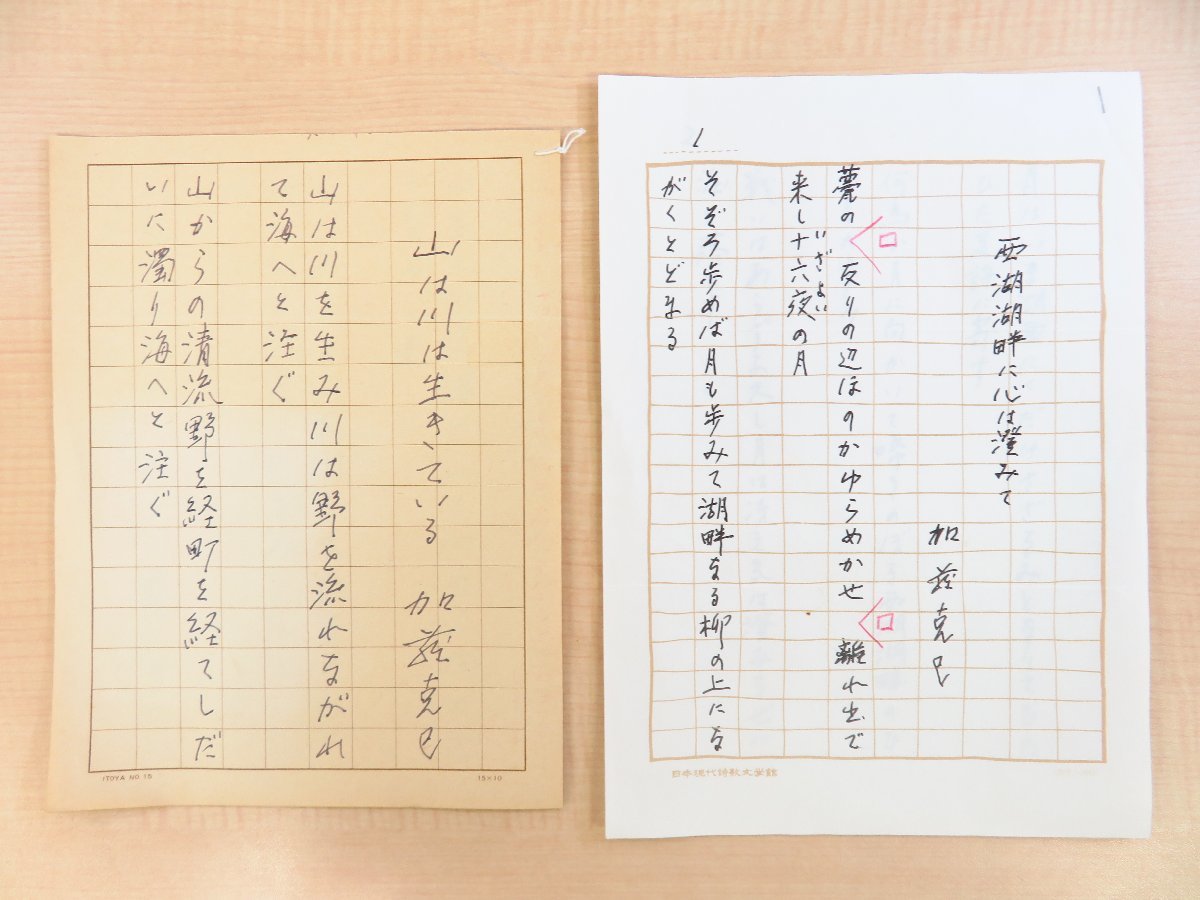 1
西湖湖畔に心は澄みて
加藤克巳
甍の□反りの辺ほのかゆらめかせ□離れ出で
いざよい
来し十六夜の月
そぞろ歩めば月も歩みて湖畔なる柳の上にな
がくとどまる
日本現代詩歌文学館
山は川は生きている 加藤克巳
山は川を生み川は野を流れながれ
て海へと注ぐ
山からの清流野を経町を経てしだ
いに濁り海へと注ぐ
ITOYA NO 15
15×10